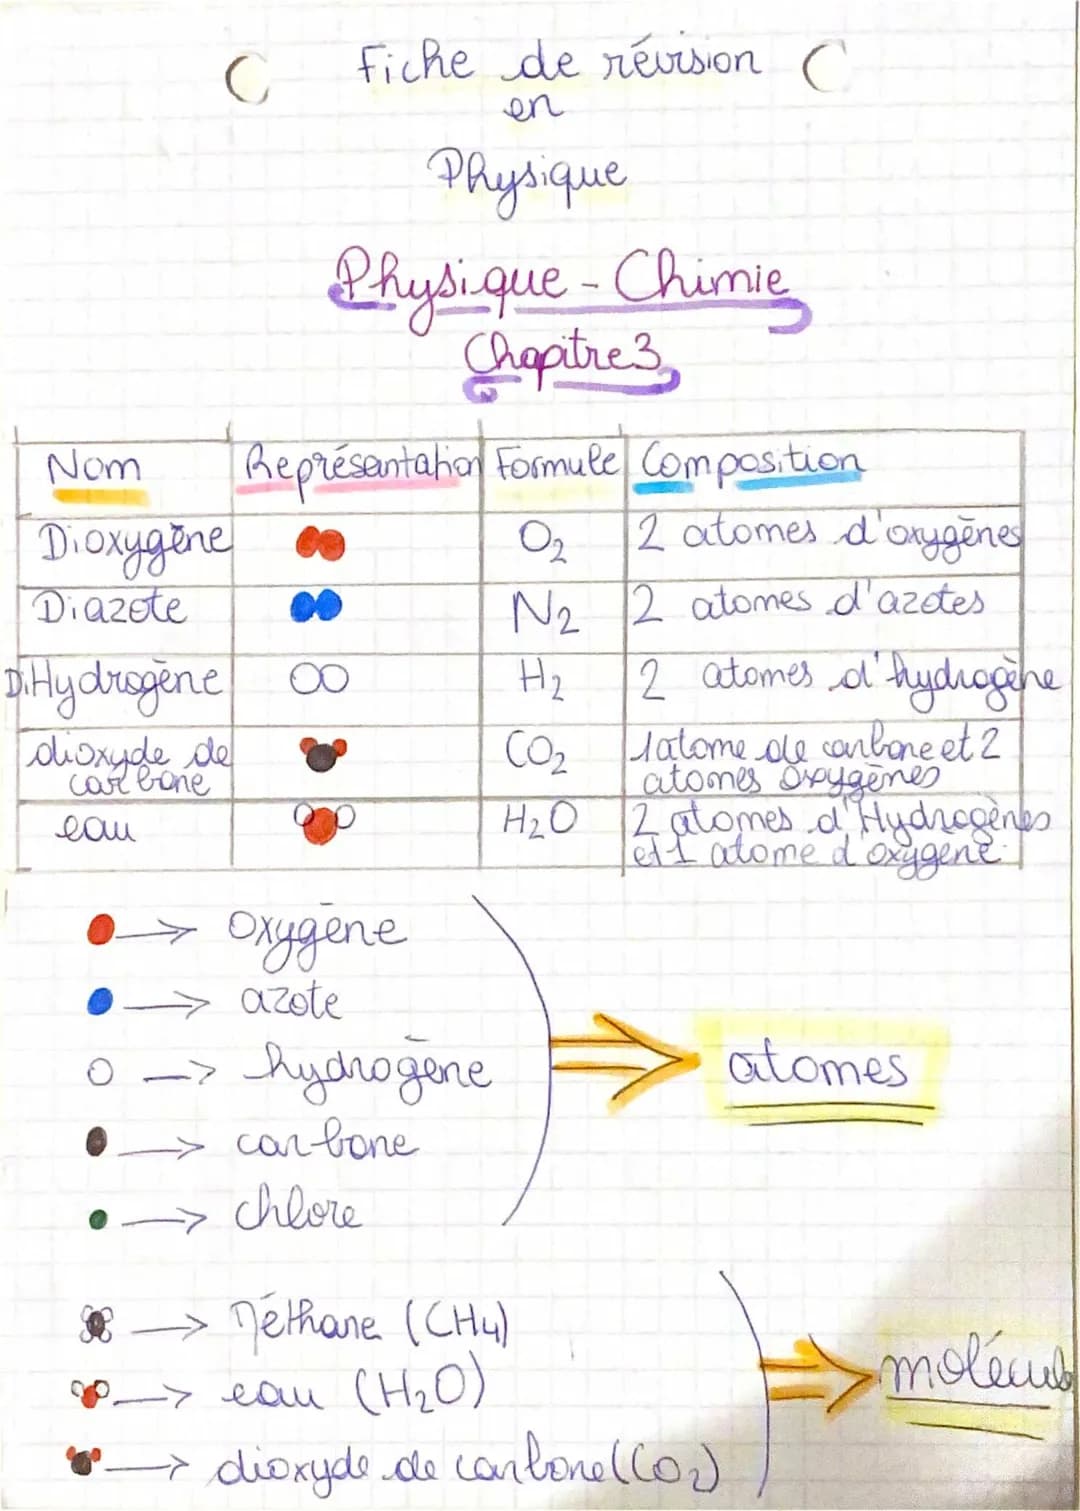 Fiche de révision
en
Physique
Physique - Chimie
Chapitre 3
Nom Représentation Formule Composition
Dioxygène O₂ 2 atomes d'oxygènes
Diazote N₂ 2 atomes d'azotes
DiHydrogène H₂ 2 atomes d'hydrogène
dioxyde de carbone CO₂ 1 atome de carbone et 2
atomes oxygènes
eau H₂O 2 atomes d'Hydrogènes
et 1 atome d'oxygène.
→ Oxygène
→ azote
→ hydrogène
→ carbone
→ chlore
⇒ atomes
→ Méthane (CH4)
→ eau (H₂O)
→ dioxyde de carbone (CO₂)
⇒ molécul